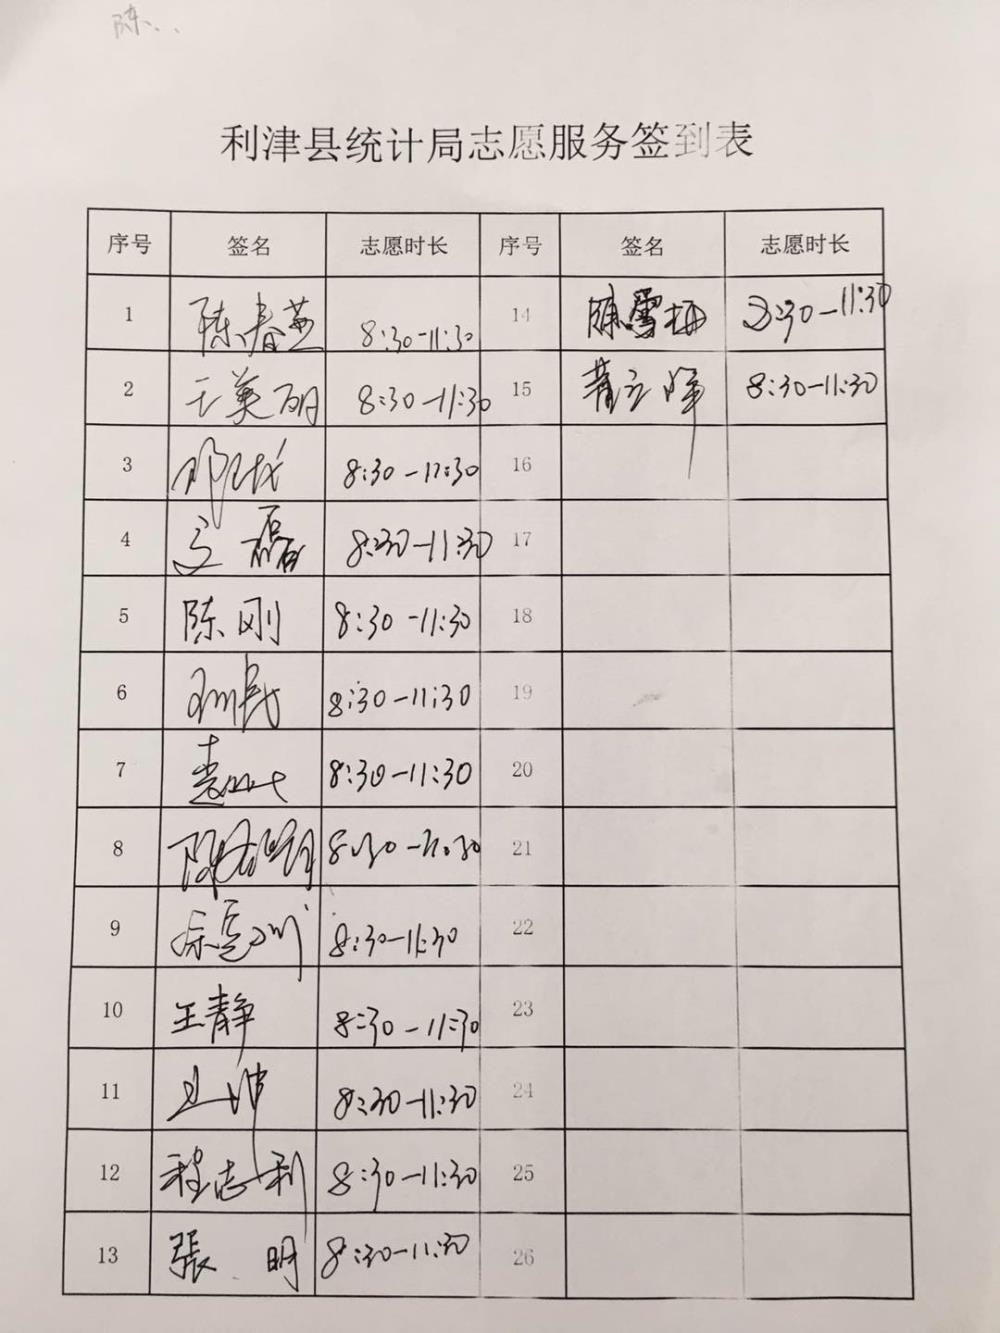 陈
利津县统计局志愿服务签到表
序号 签名 志愿时长 序号 签名 志愿时长
1 陈春芝 8:30-11:30 14 陈雪梅 8:30-11:30
2 王美丽 8:30-11:30 15 8:30-11:30
3 8:30-11:30 16
4 磊 8:30-11:30 17
5 陈刚 8:30-11:30 18
6 8:30-11:30 19
7 8:30-11:30 20
8 陈 8:30-11:30 21
9 8:30-11:30 22
10 王静 8:30-11:30 23
11 王坤 8:30-11:30 24
12 程志利 8:30-11:30 25
13 張明 8:30-11:30 26